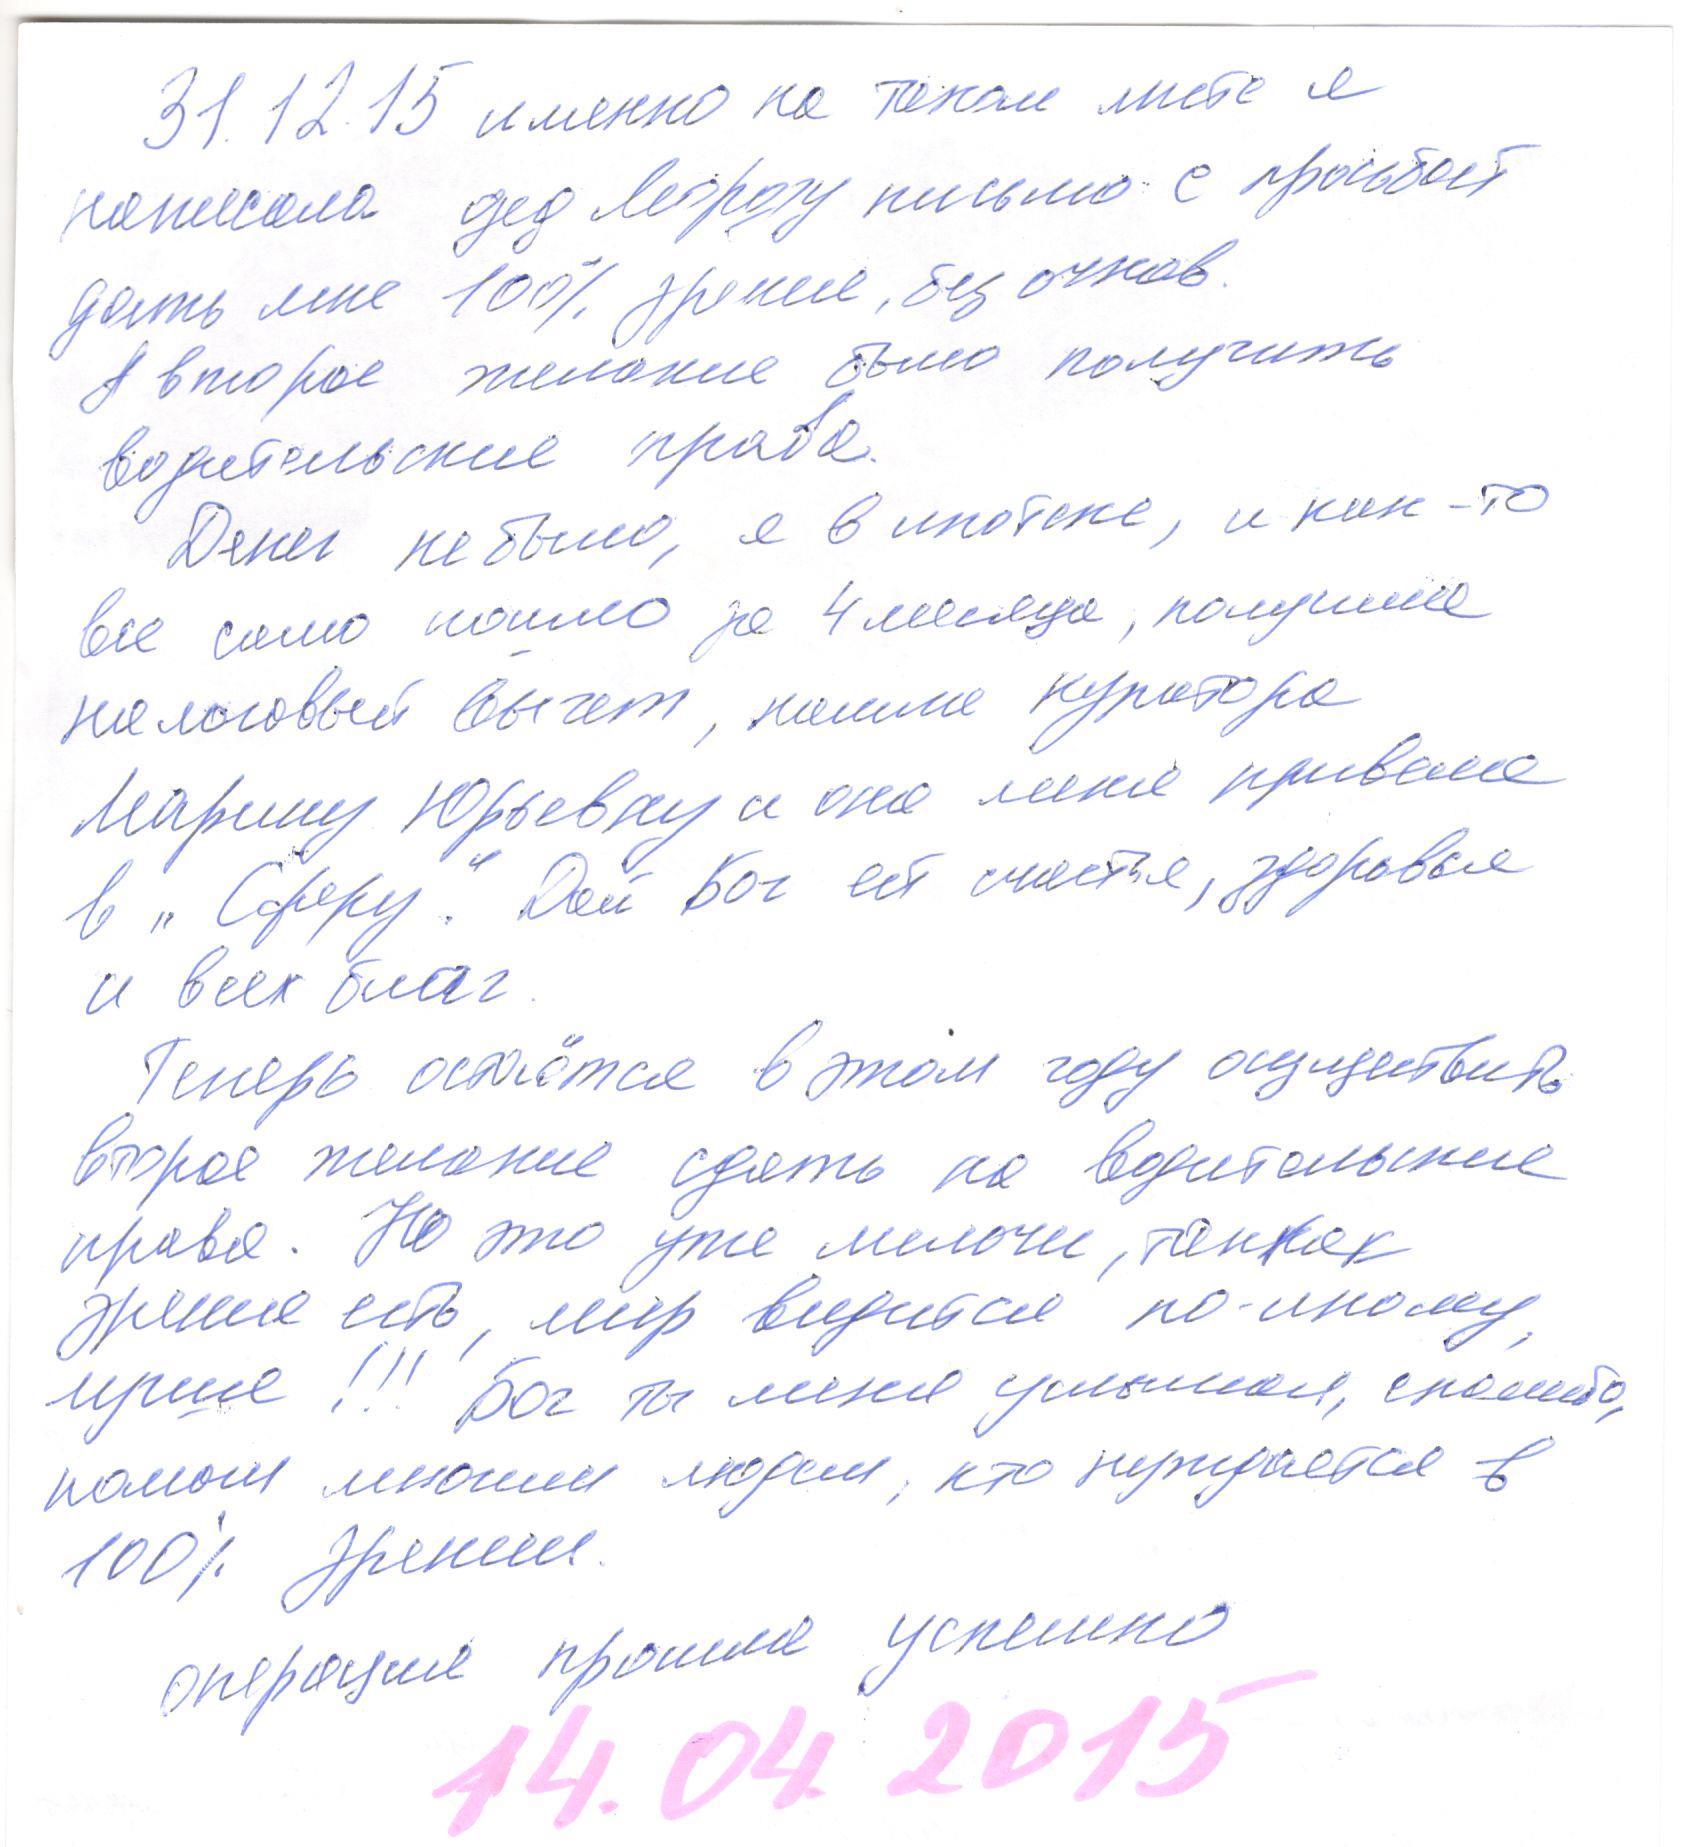 31.12.15 именно на таком листе я
написала дед Морозу письмо с просьбой
дать мне 100% зрение, без очков.
А второе желание было получить
водительские права.
Денег не было, я в ипотеке, и как-то
все само пошло за 4 месяца, получила
налоговый вычет, нашла куратора
Марину Юрьевну и она меня привела
в „Сферу". Дай Бог ей счастья, здоровья
и всех благ.
Теперь остаётся в этом году осуществить
второе желание сдать на водительские
права. Но это уже мелочи, так как
зрение есть, мир видится по-иному,
лучше !!! Бог ты меня услышал, спасибо,
помоги многим людям, кто нуждается в
100% зрении.
операция прошла успешно
14.04.2015